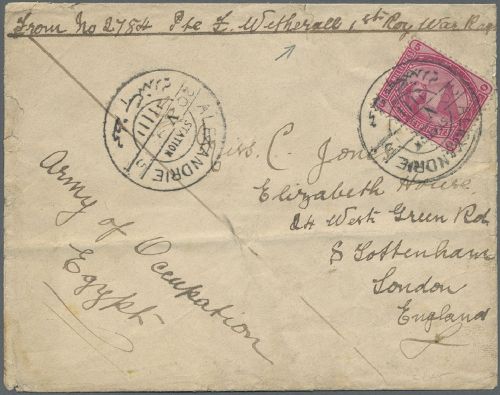 From No 2784 Pte L. Wetherall 1st Roy War Reg
ALEXANDRIE
STATION
Miss. C. Jone
Elizabeth House
24 West Green Rd
S Tottenham
London
England
Army of Occupation
Egypt